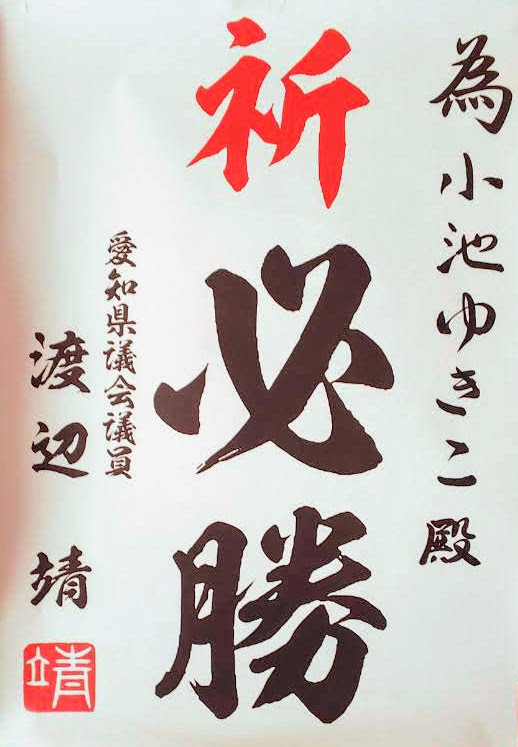 為小池ゆきこ殿
祈必勝
愛知県議会議員
渡辺靖
靖